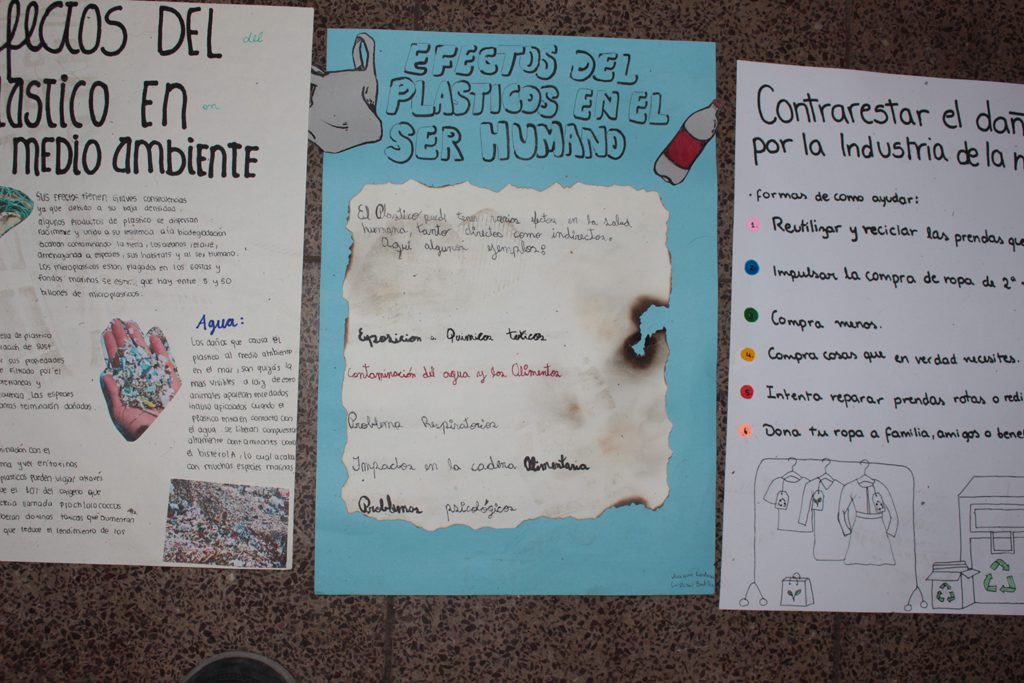 DEL
del
en
EN
MEDIO AMBIENTE
SUS EFECTOS TIENEN GRAVES CONSECUENCIAS
ya que debido a su baja densidad
algunos productos de plastico se dispersan
facilmente y unido a su resistencia a la biodegradación
acaban contaminando la tierra, los oceanos
amenazando a especies, sus habitats y al ser Humano.
Los microplasticos están plagados en las costas y
fondos marinos se estima que hay entre 5 y 50
billones de microplasticos.
de plastico
sus propiedades
por el
las especies
terminarán dañados.
Agua:
Los daños que causa el
plastico al medio ambiente
en el mar, son quizás la
mas visibles a raiz de esto
animales aparecen enredados
incluso asfixiados cuando el
plastico entra en contacto con
el agua se liberan compuestos
altamente contaminantes como
el bisfenol A, lo cual acaba
con muchas especies marinas
con el
plasticos pueden viajar através
que el 10% del oxigeno que
llamada prochlorococcus
toxicas que aumentan
que reduce el rendimiento de los
EFECTOS DEL
PLASTICOS EN EL
SER HUMANO
El Plastico puede tener varios efectos en la salud
humana, tanto directos como indirectos.
Aquí algunos ejemplos:
Exposicion a Quimicos toxicos
Contaminación del agua y los Alimentos
Problema Respiratorios
Impactos en la cadena Alimentaria
Problemas psicológicos
Contrarestar el
por la Industria de la
· formas de como ayudar:
1. Reutilizar y reciclar las prendas
2. Impulsar la compra de ropa de 2ª
3. Compra menos.
4. Compra cosas que en verdad necesites.
5. Intenta reparar prendas rotas o
6. Dona tu ropa a familia, amigos o